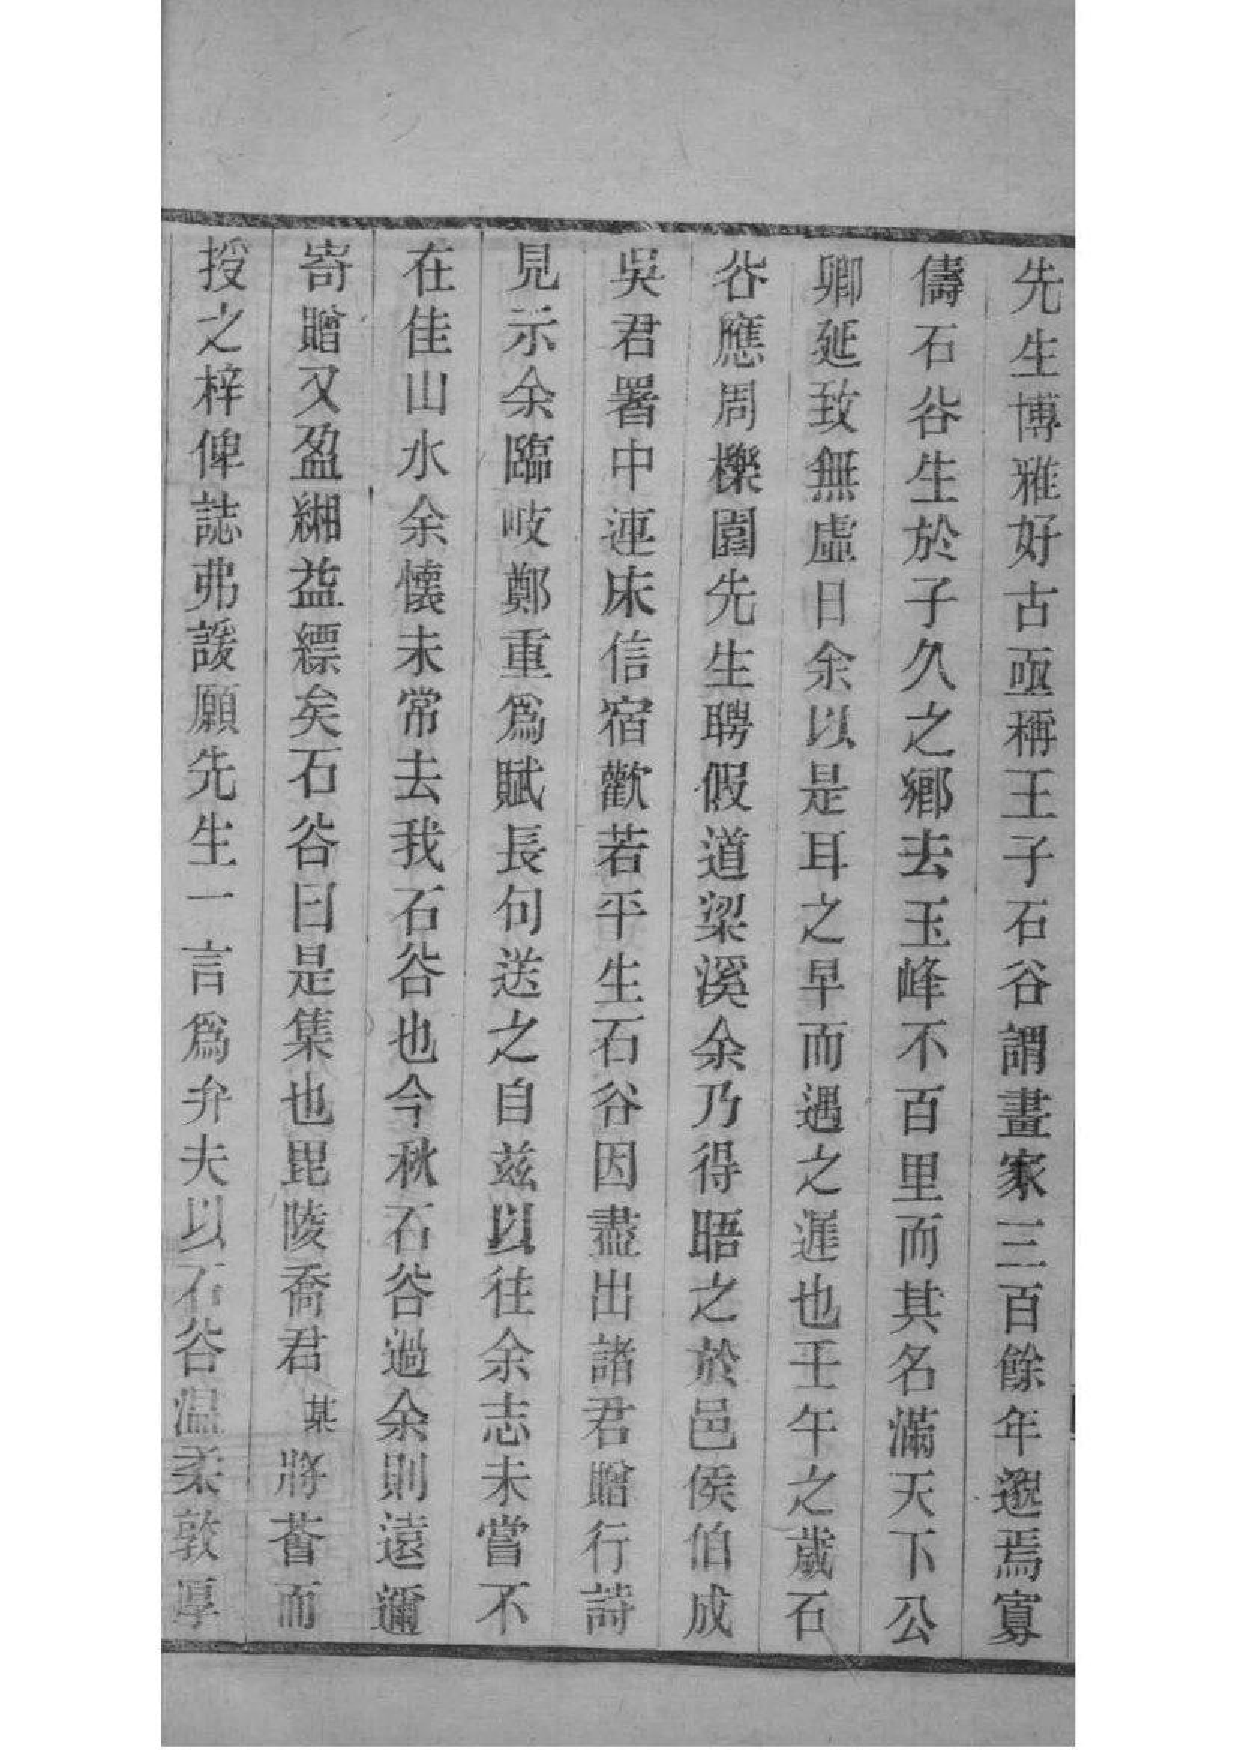 先生博雅好古亟稱王子石谷謂畫家三百餘年邈焉寡
儔石谷生於子久之鄉去玉峰不百里而其名滿天下公
卿延致無虛日余以是耳之早而遇之遲也壬午之歲石
谷應周櫟園先生聘假道梁溪余乃得晤之於邑侯伯成
吳君署中連床信宿歡若平生石谷因盡出諸君贈行詩
見示余臨岐鄭重爲賦長句送之自茲以往余志未嘗不
在佳山水余懷未常去我石谷也今秋石谷過余則遠邇
寄贈又盈緗益縹矣石谷曰是集也毘陵喬君某將蓄而
授之梓俾誌弗諼願先生一言爲弁夫以石谷温柔敦厚